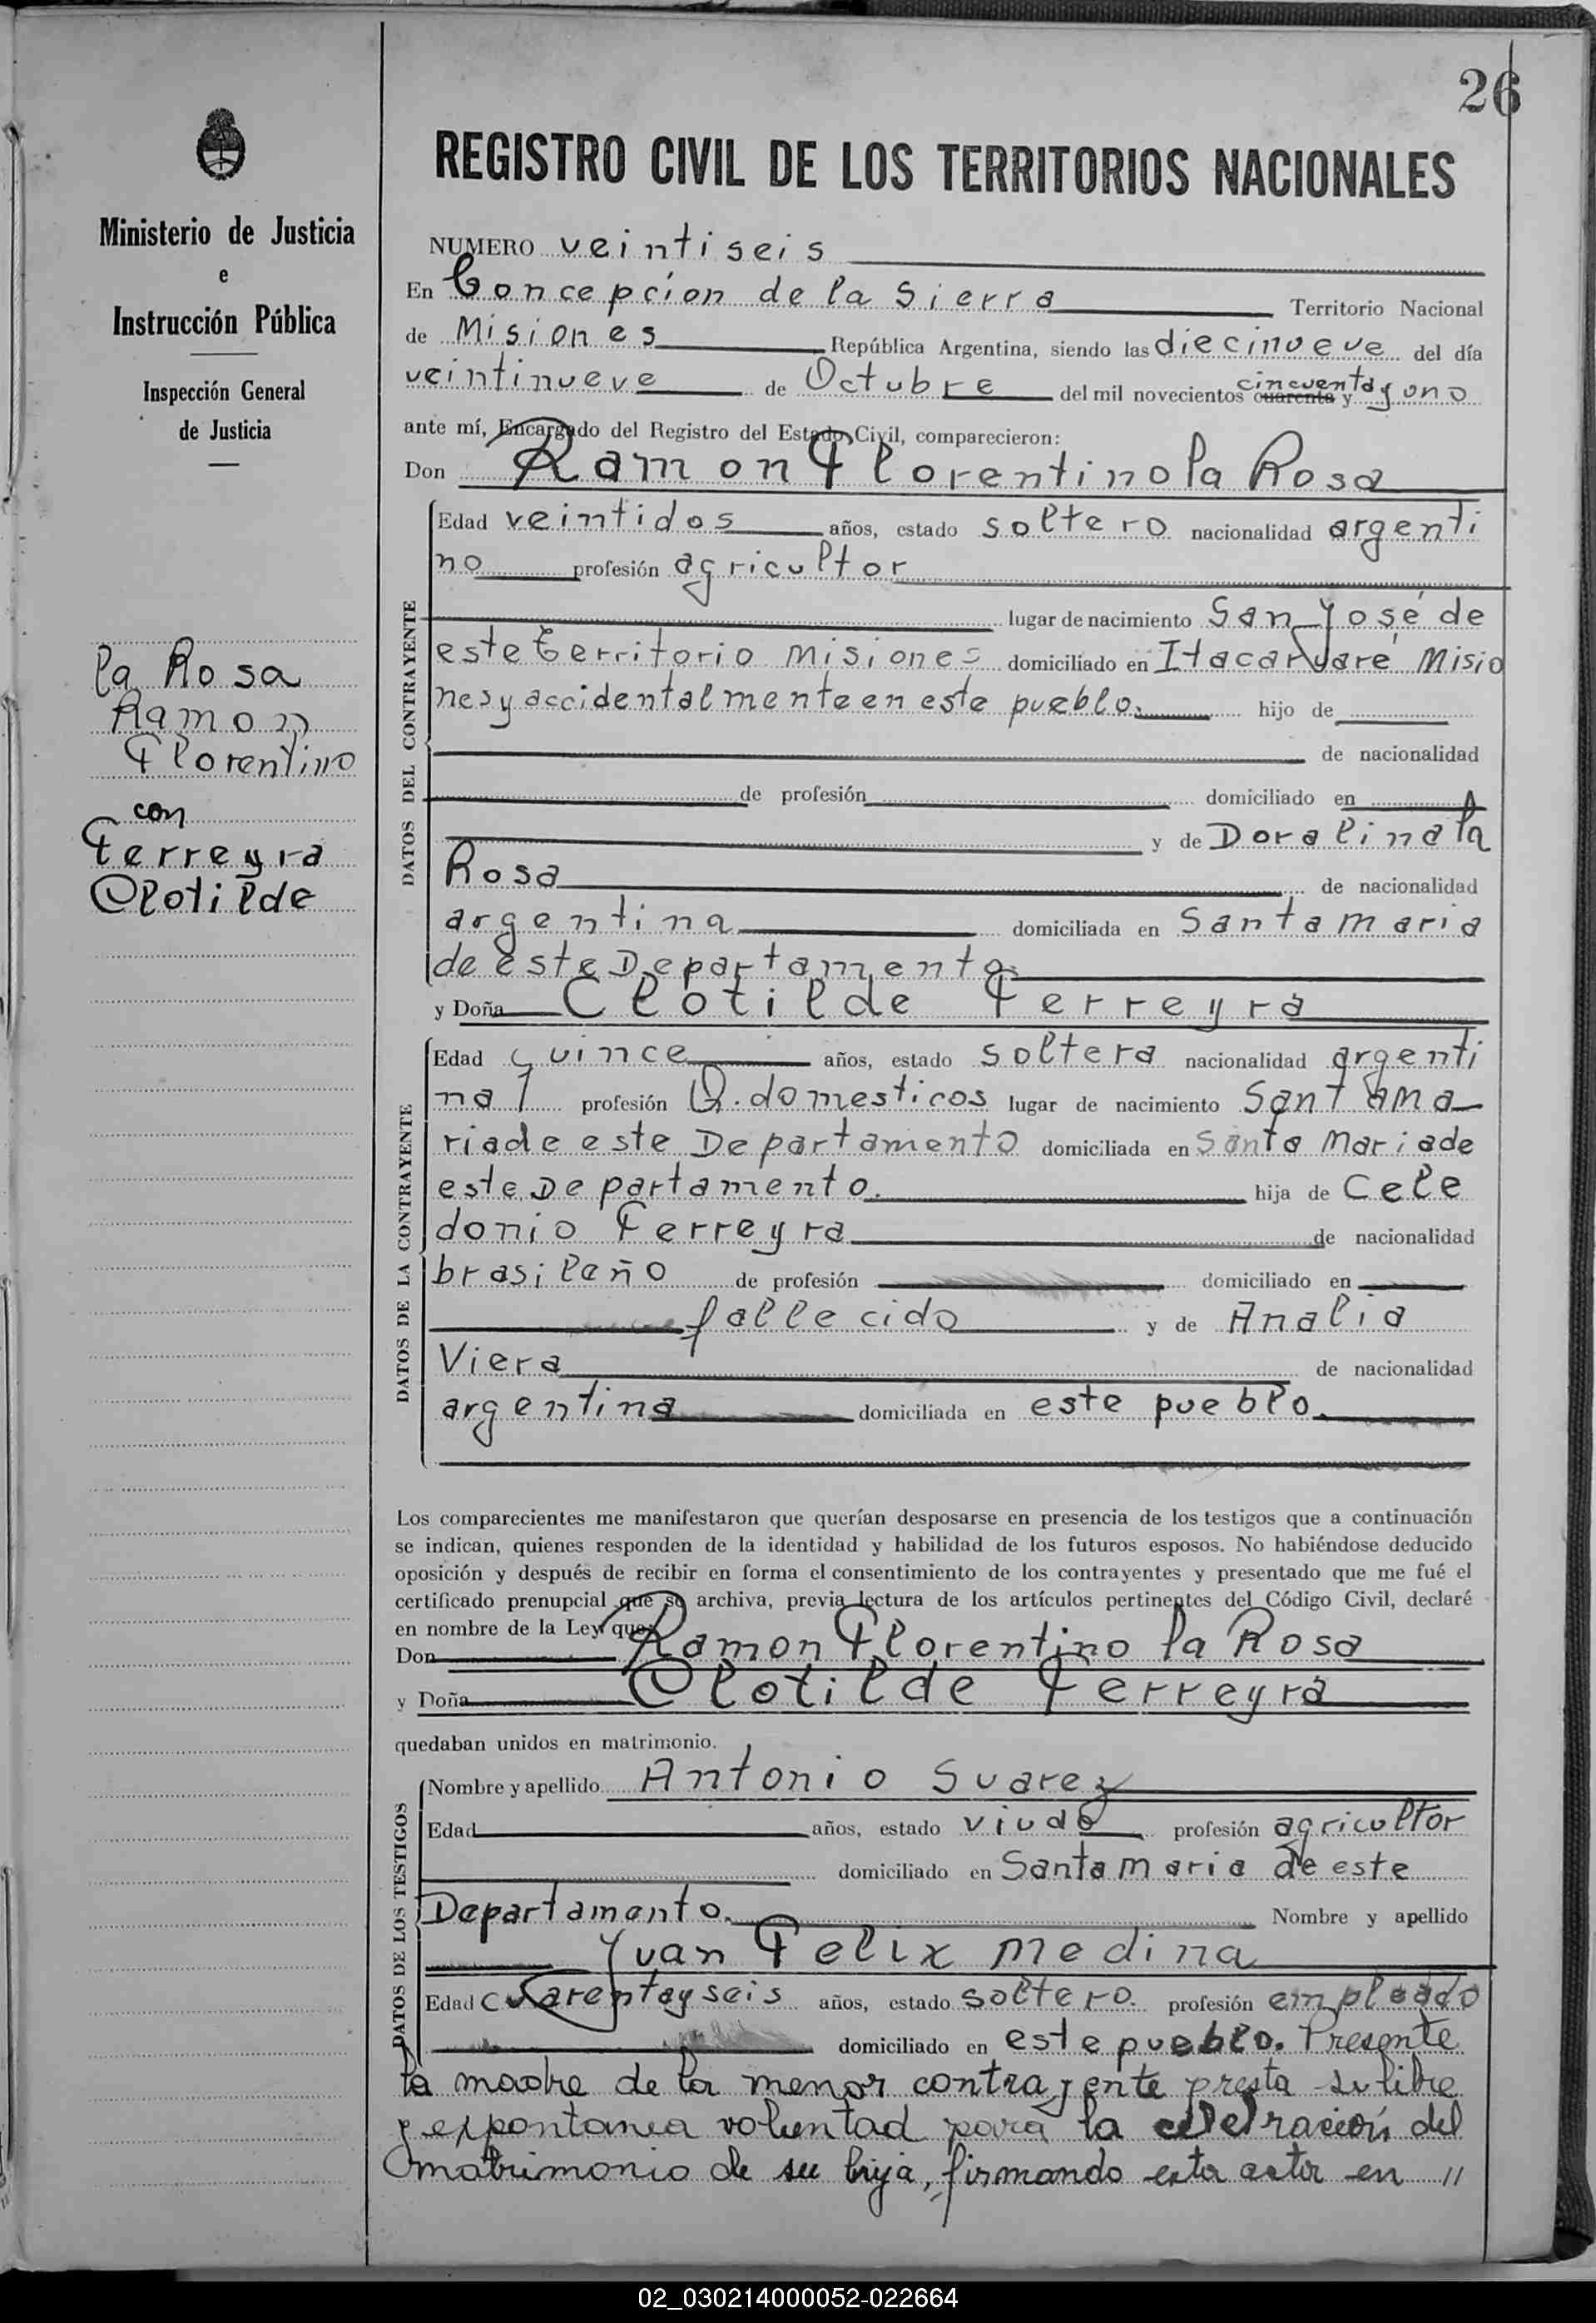 26
REGISTRO CIVIL DE LOS TERRITORIOS NACIONALES
Ministerio de Justicia
e
Instrucción Pública
Inspección General
de Justicia
la Rosa
Ramon
Florentino
con
Ferreyra
Clotilde
NUMERO veintiseis
En Concepcion de la Sierra Territorio Nacional
de Misiones República Argentina, siendo las diecinueve del día
veintinueve de Octubre del mil novecientos cuarenta y cincuenta y uno
ante mí, Encargado del Registro del Estado Civil, comparecieron:
Don Ramon Florentino la Rosa
DATOS DEL CONTRAYENTE
Edad veintidos años, estado soltero nacionalidad argenti
no profesión agricultor
lugar de nacimiento San José de
este territorio Misiones domiciliado en Itacaruaré Misio
nes y accidentalmente en este pueblo. hijo de
de nacionalidad
de profesión domiciliado en
y de Doralina la
Rosa de nacionalidad
argentina domiciliada en Santa Maria
de este Departamento
y Doña Clotilde Ferreyra
DATOS DE LA CONTRAYENTE
Edad quince años, estado soltera nacionalidad argenti
na profesión Q. domesticos lugar de nacimiento Santa Ma
ria de este Departamento domiciliada en Santa Maria de
este Departamento. hija de Cele
donio Ferreyra de nacionalidad
brasileño de profesión domiciliado en
fallecido y de Analia
Viera de nacionalidad
argentina domiciliada en este pueblo.
Los comparecientes me manifestaron que querían desposarse en presencia de los testigos que a continuación
se indican, quienes responden de la identidad y habilidad de los futuros esposos. No habiéndose deducido
oposición y después de recibir en forma el consentimiento de los contrayentes y presentado que me fué el
certificado prenupcial que se archiva, previa lectura de los artículos pertinentes del Código Civil, declaré
en nombre de la Ley que:
Don Ramon Florentino la Rosa
y Doña Clotilde Ferreyra
quedaban unidos en matrimonio.
DATOS DE LOS TESTIGOS
Nombre y apellido Antonio Suarez
Edad años, estado viudo profesión agricultor
domiciliado en Santa Maria de este
Departamento. Nombre y apellido
Juan Felix Medina
Edad cuarenta y seis años, estado soltero. profesión empleado
domiciliado en este pueblo. Presente
la madre de la menor contrayente presta su libre
y expontanea voluntad para la celebración del
matrimonio de su hija, firmando esta acta en "
02_030214000052-022664